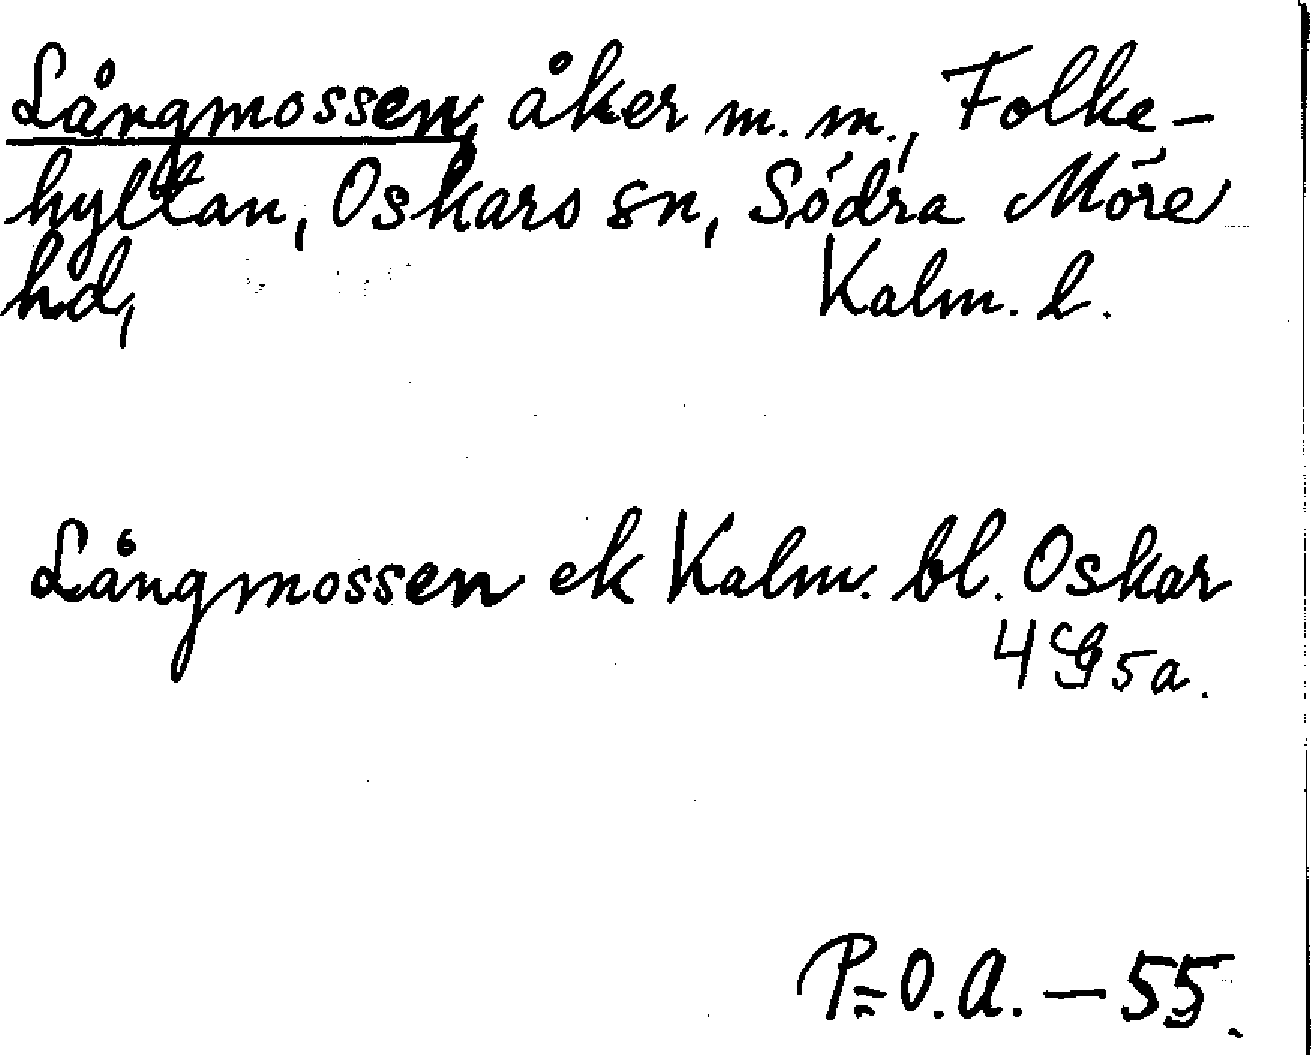 Långmossen, åker m. m., Folke-
hyltan, Oskars sn, Södra Möre
hd, Kalm. l.
Långmossen ek Kalm. bl. Oskar
4G5a.
P=O.A. — 55.